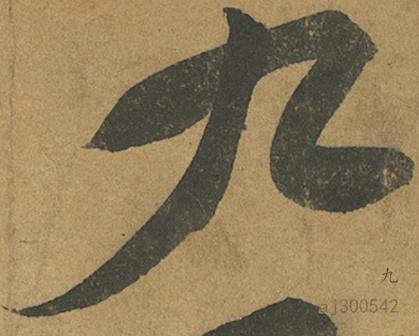 九
九
aj300542